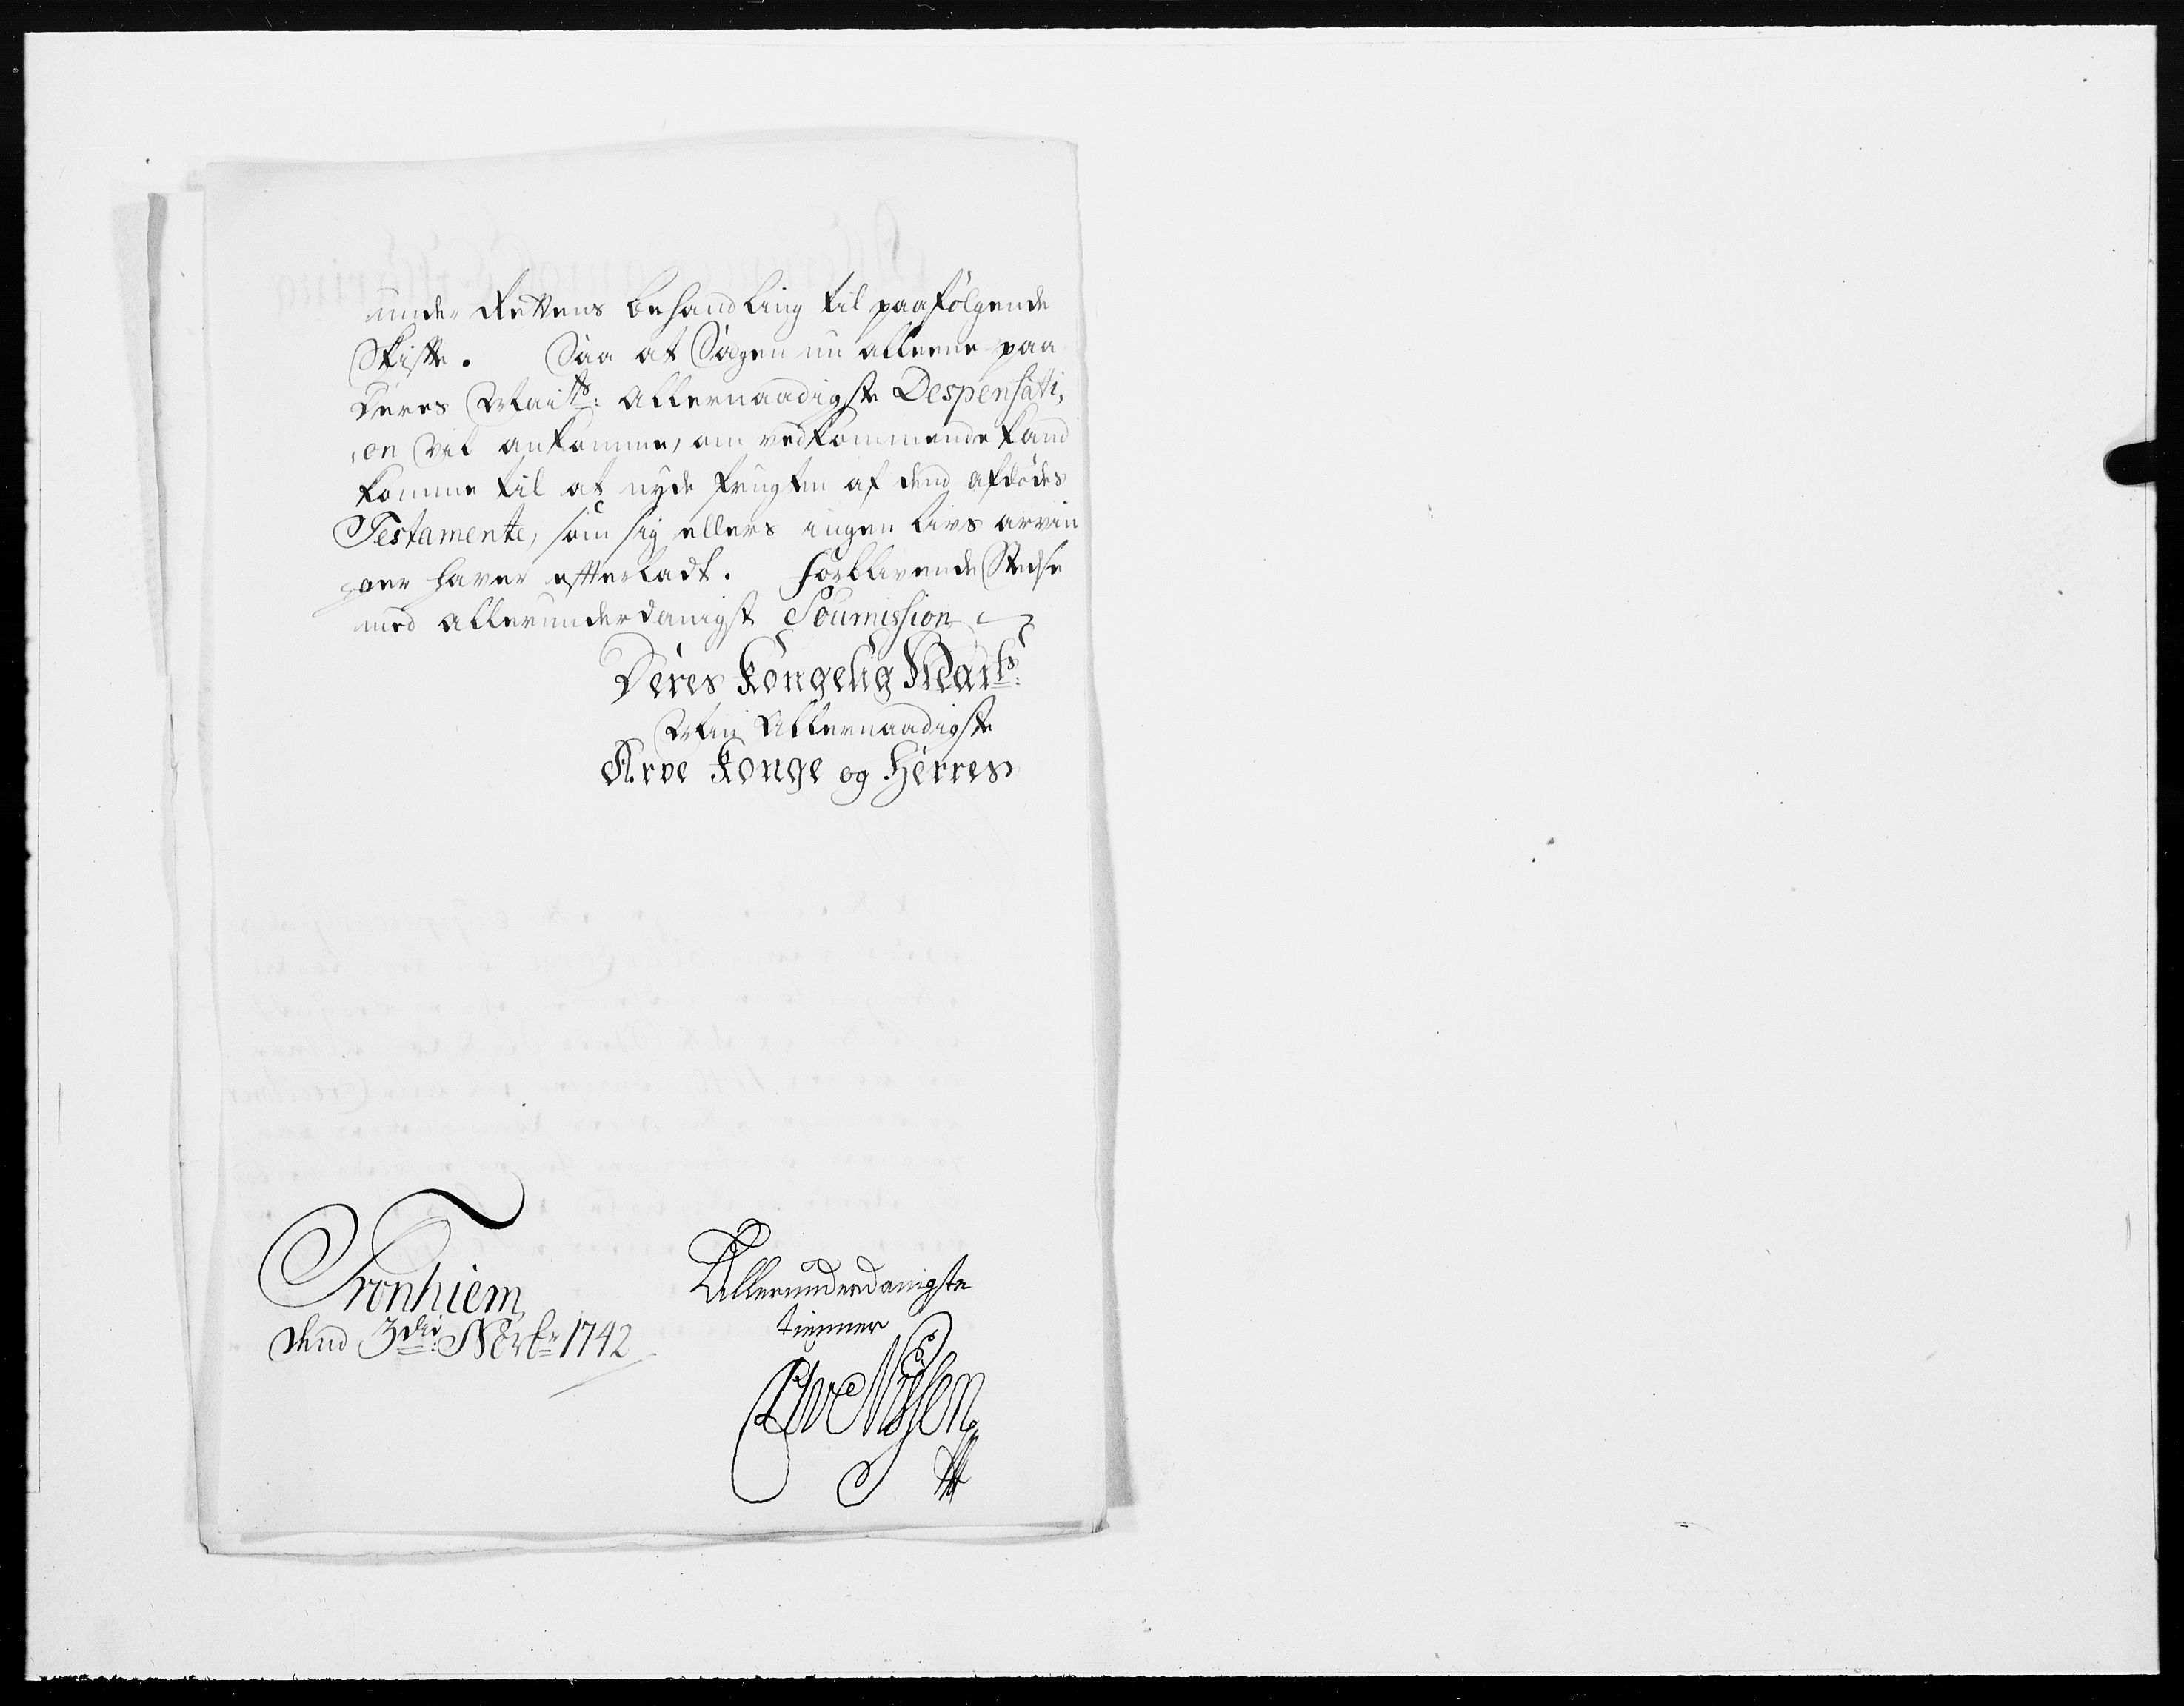 under Rettens behandling til paafölgende
Skifte. Saa at Sagen nu alleene paa
Deres Maits: Allernaadigste Despensati,
,on vil ankomme, om vedkommende kand
komme til at nyde frugten af dend afdödes
Testamente, som sig ellers ingen livs arvin
ger haver efterladt. Forblivende Stedse
med allerunderdanigst Soumission
Deres Kongelig Maits:
Min Allernaadigste
Arve Konge og Herres
Tronhiem
dend 3die: Novbr 1742
Allerunderdanigste
tienner